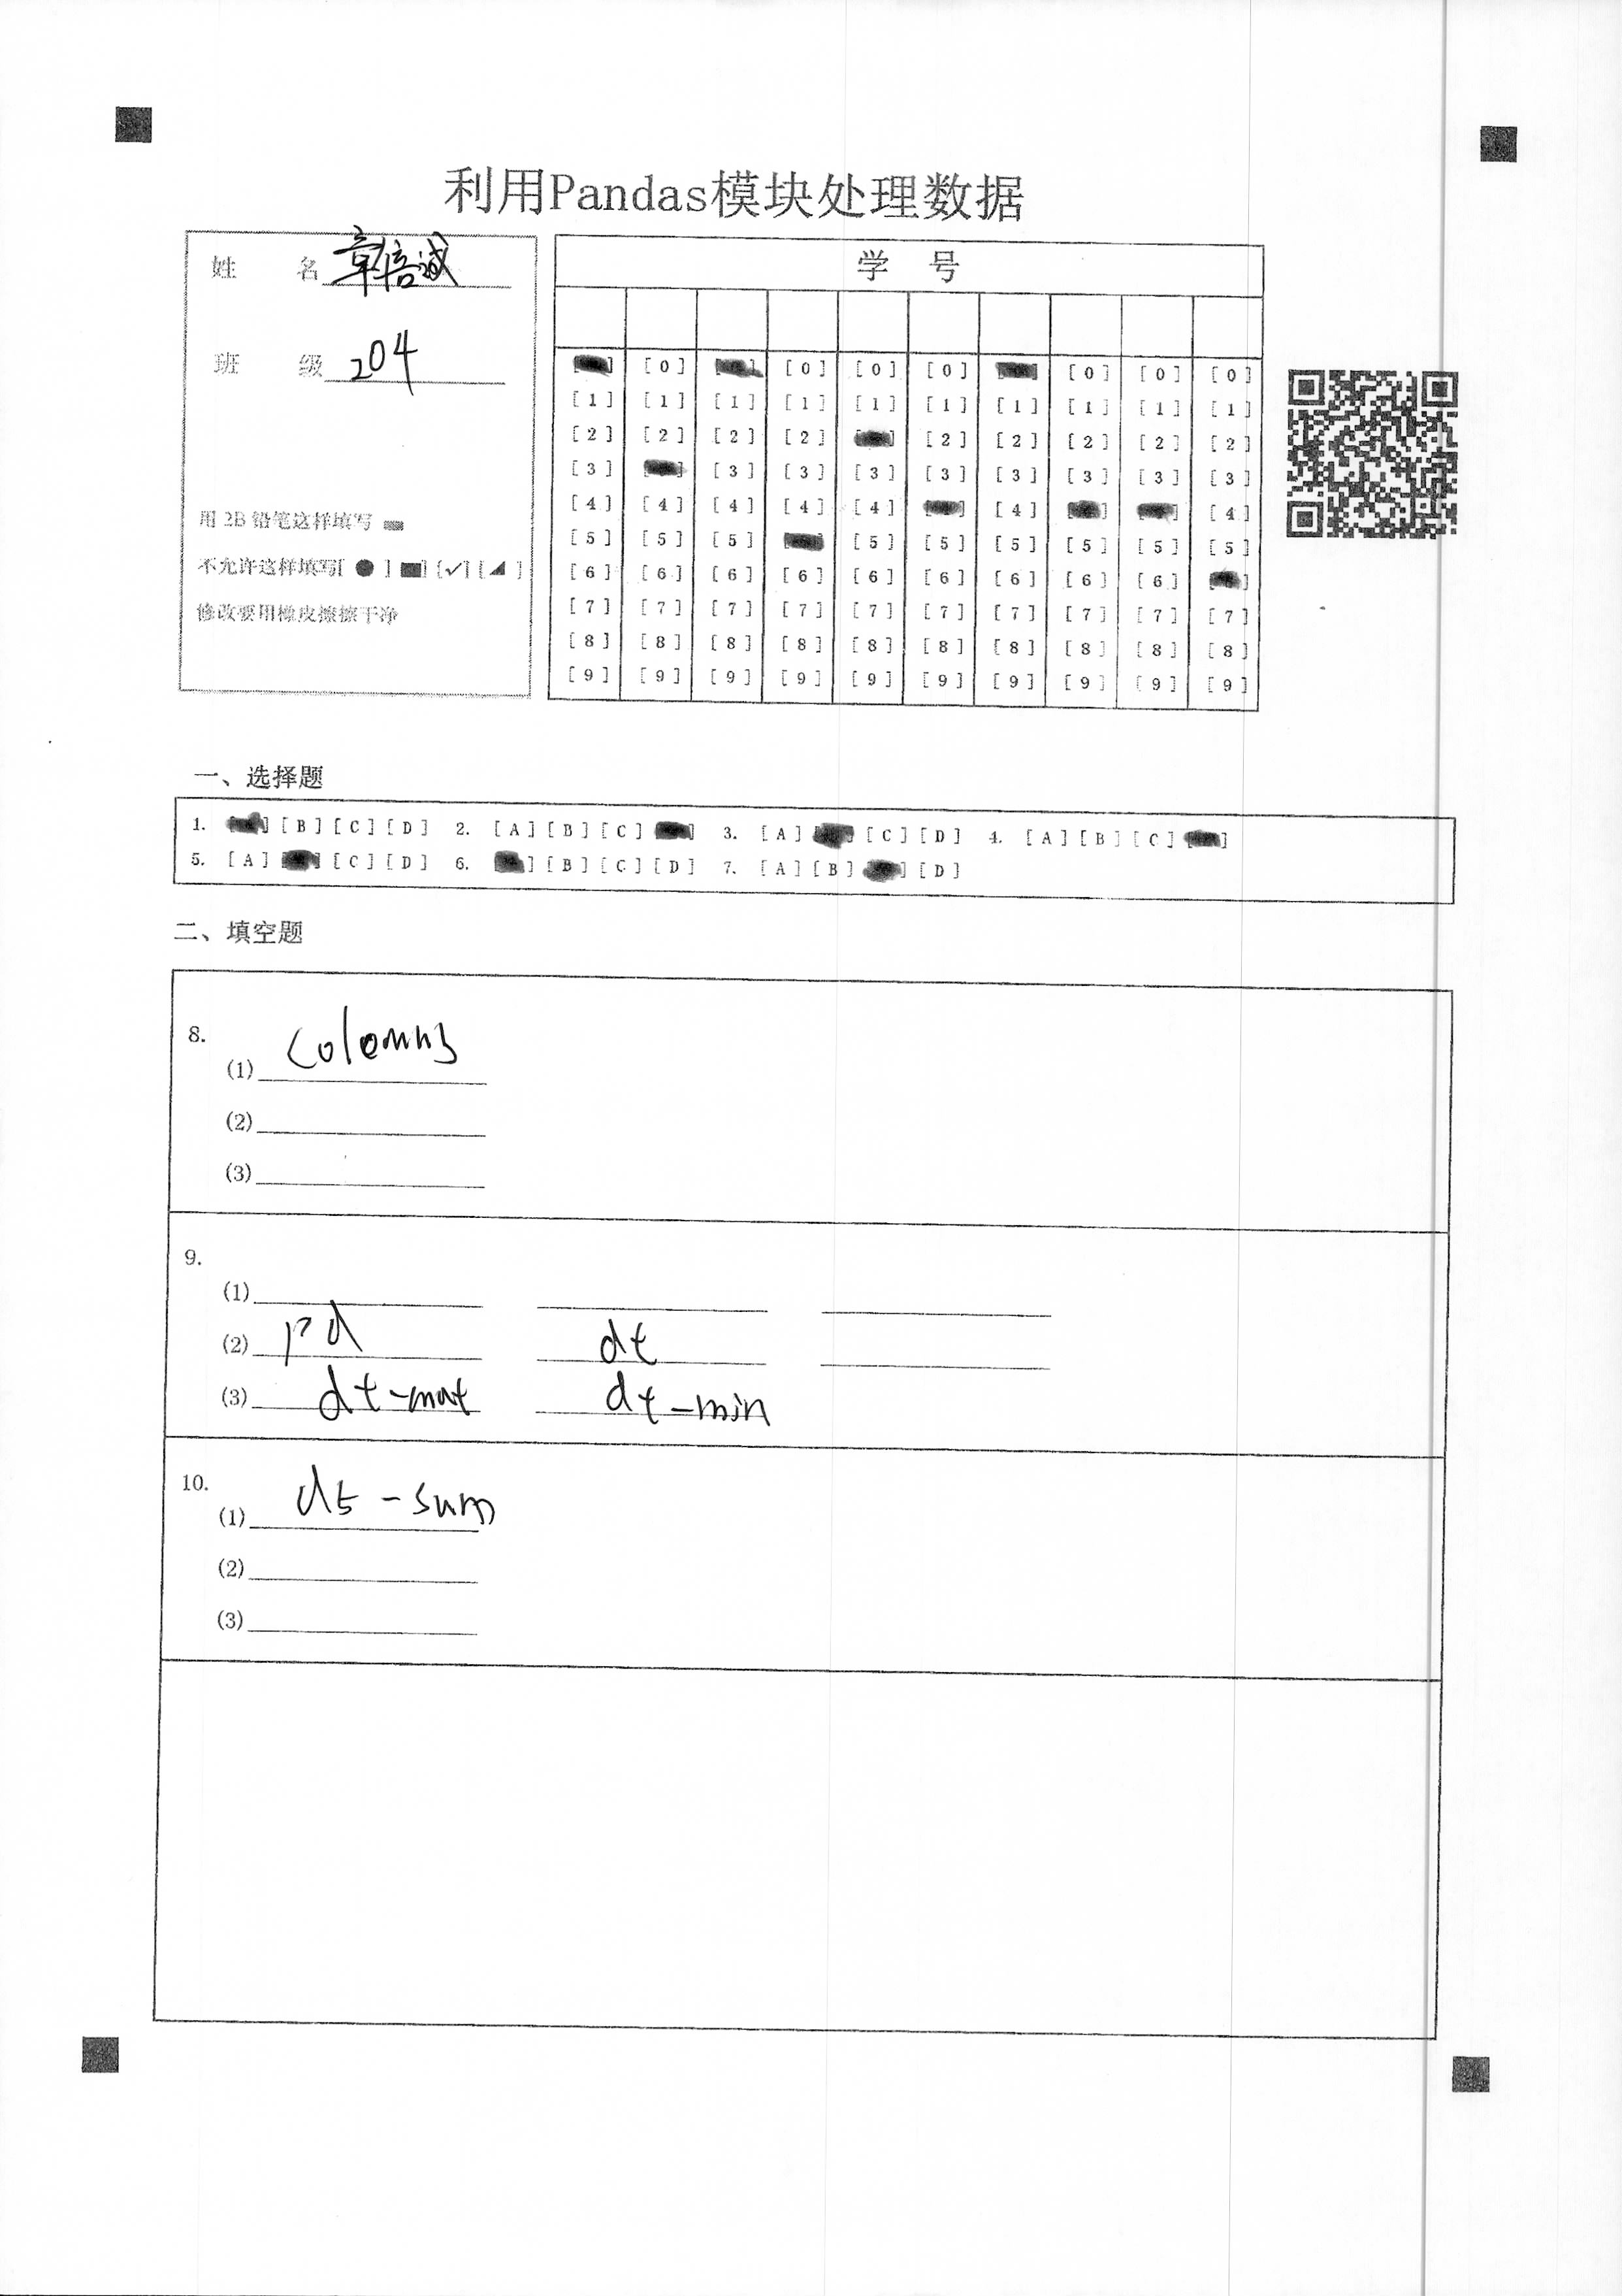 利用Pandas模块处理数据
姓 名 章倍诚
班 级 204
用 2B 铅笔这样填写
不允许这样填写[ ● ] [ ■ ] [ ✓ ] [ ◢ ]
修改要用橡皮擦擦干净
学 号
[0] [0] [0] [0] [0] [0] [0]
[1] [1] [1] [1] [1] [1] [1] [1] [1] [1]
[2] [2] [2] [2] [2] [2] [2] [2] [2]
[3] [3] [3] [3] [3] [3] [3] [3] [3]
[4] [4] [4] [4] [4] [4] [4]
[5] [5] [5] [5] [5] [5] [5] [5] [5]
[6] [6] [6] [6] [6] [6] [6] [6] [6]
[7] [7] [7] [7] [7] [7] [7] [7] [7] [7]
[8] [8] [8] [8] [8] [8] [8] [8] [8] [8]
[9] [9] [9] [9] [9] [9] [9] [9] [9] [9]
一、选择题
1. [B] [C] [D] 2. [A] [B] [C] 3. [A] [C] [D] 4. [A] [B] [C]
5. [A] [C] [D] 6. [B] [C] [D] 7. [A] [B] [D]
二、填空题
8.
(1) colemns
(2)
(3)
9.
(1)
(2) pd dt
(3) dt-mat dt-min
10.
(1) dt-sum
(2)
(3)